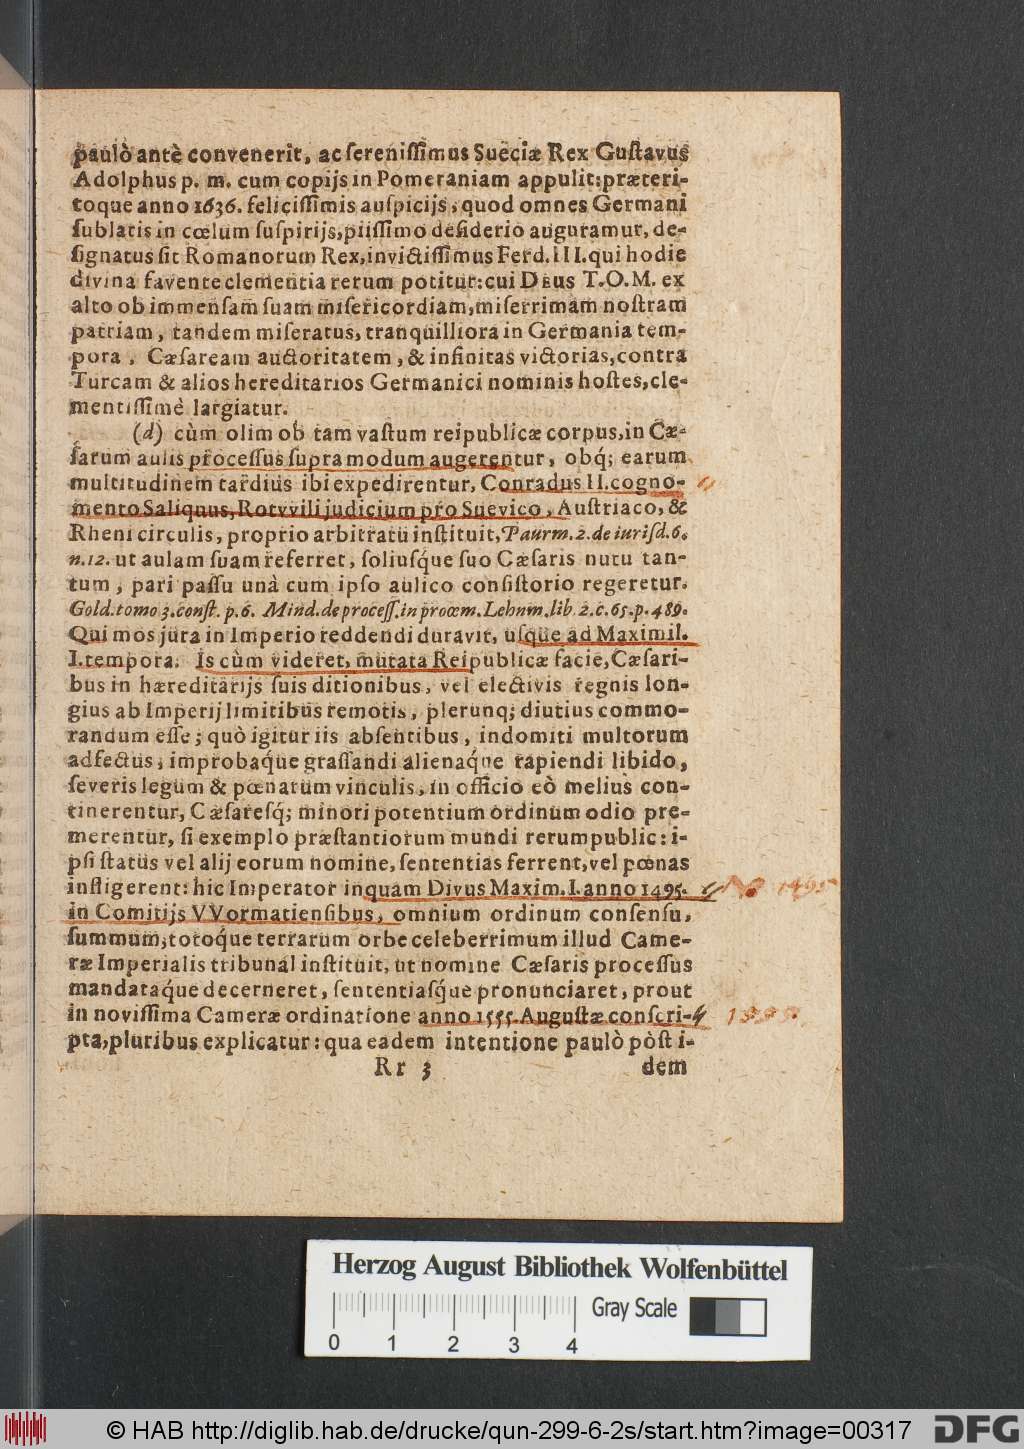 paulò antè convenerit, ac sereniſſimus Sueciæ Rex Guſtavus
Adolphus p. m. cum copijs in Pomeraniam appulit:præteri-
toque anno 1636. feliciſſimis auſpicijs, quod omnes Germani
ſublatis in cœlum ſuſpirijs,piiſſimo deſiderio auguramur, de-
ſignatus ſit Romanorum Rex,invictiſſimus Ferd.III.qui hodie
divina favente clementia rerum potitur:cui Deus T.O.M. ex
alto ob immenſam ſuam miſericordiam,miſerrimam noſtram
patriam, tandem miſeratus, tranquilliora in Germania tem-
pora, Cæſaream auctoritatem, & infinitas victorias,contra
Turcam & alios hereditarios Germanici nominis hoſtes,cle-
mentiſſimè largiatur.
(d) cùm olim ob tam vaſtum reipublicæ corpus,in Cæ-
ſarum aulis proceſſus ſupra modum augerentur, obq́; earum
multitudinem tardius ibi expedirentur, Conradus II.cogno-
mento Saliquus, Rotvvili judicium pro Suevico, Auſtriaco, &
Rheni circulis, proprio arbitratu inſtituit, Paurm.2.de iuriſd.6.
n.12. ut aulam ſuam referret, ſoliuſq́ue ſuo Cæſaris nutu tan-
tum, pari paſſu unà cum ipſo aulico conſiſtorio regeretur.
Gold.tomo 3.conſt.p.6. Mind.de proceſſ.in proœm.Lehnm.lib 2.c.65.p.489.
Qui mos jura in Imperio reddendi duravit, uſque ad Maximil.
I.tempora. Is cùm videret, mutata Reipublicæ facie,Cæſari-
bus in hæreditarijs ſuis ditionibus, vel electivis regnis lon-
gius ab Imperij limitibus remotis, plerunq; diutius commo-
randum eſſe; quò igitur iis abſentibus, indomiti multorum
adfectus, improbaq́ue graſſandi alienaq́ue rapiendi libido,
ſeveris legum & pœnarum vinculis, in officio eò melius con-
tinerentur, Cæſareſq́; minori potentium ordinum odio pre-
merentur, ſi exemplo præſtantiorum mundi rerumpublic: i-
pſi ſtatus vel alij eorum nomine, ſententias ferrent,vel pœnas
infligerent: hic Imperator inquam Divus Maxim.I.anno 1495.
No 1495
in Comitijs VVormatienſibus, omnium ordinum conſenſu,
ſummum,totoq́ue terrarum orbe celeberrimum illud Came-
ræ Imperialis tribunal inſtituit, ut nomine Cæſaris proceſſus
mandataq́ue decerneret, ſententiaſq́ue pronunciaret, prout
in noviſſima Cameræ ordinatione anno 1555.Auguſtæ conſcri-
1555
pta,pluribus explicatur: qua eadem intentione paulò pòſt i-
Rr 3 dem
Herzog August Bibliothek Wolfenbüttel
Gray Scale
0 1 2 3 4
© HAB http://diglib.hab.de/drucke/qun-299-6-2s/start.htm?image=00317
DFG